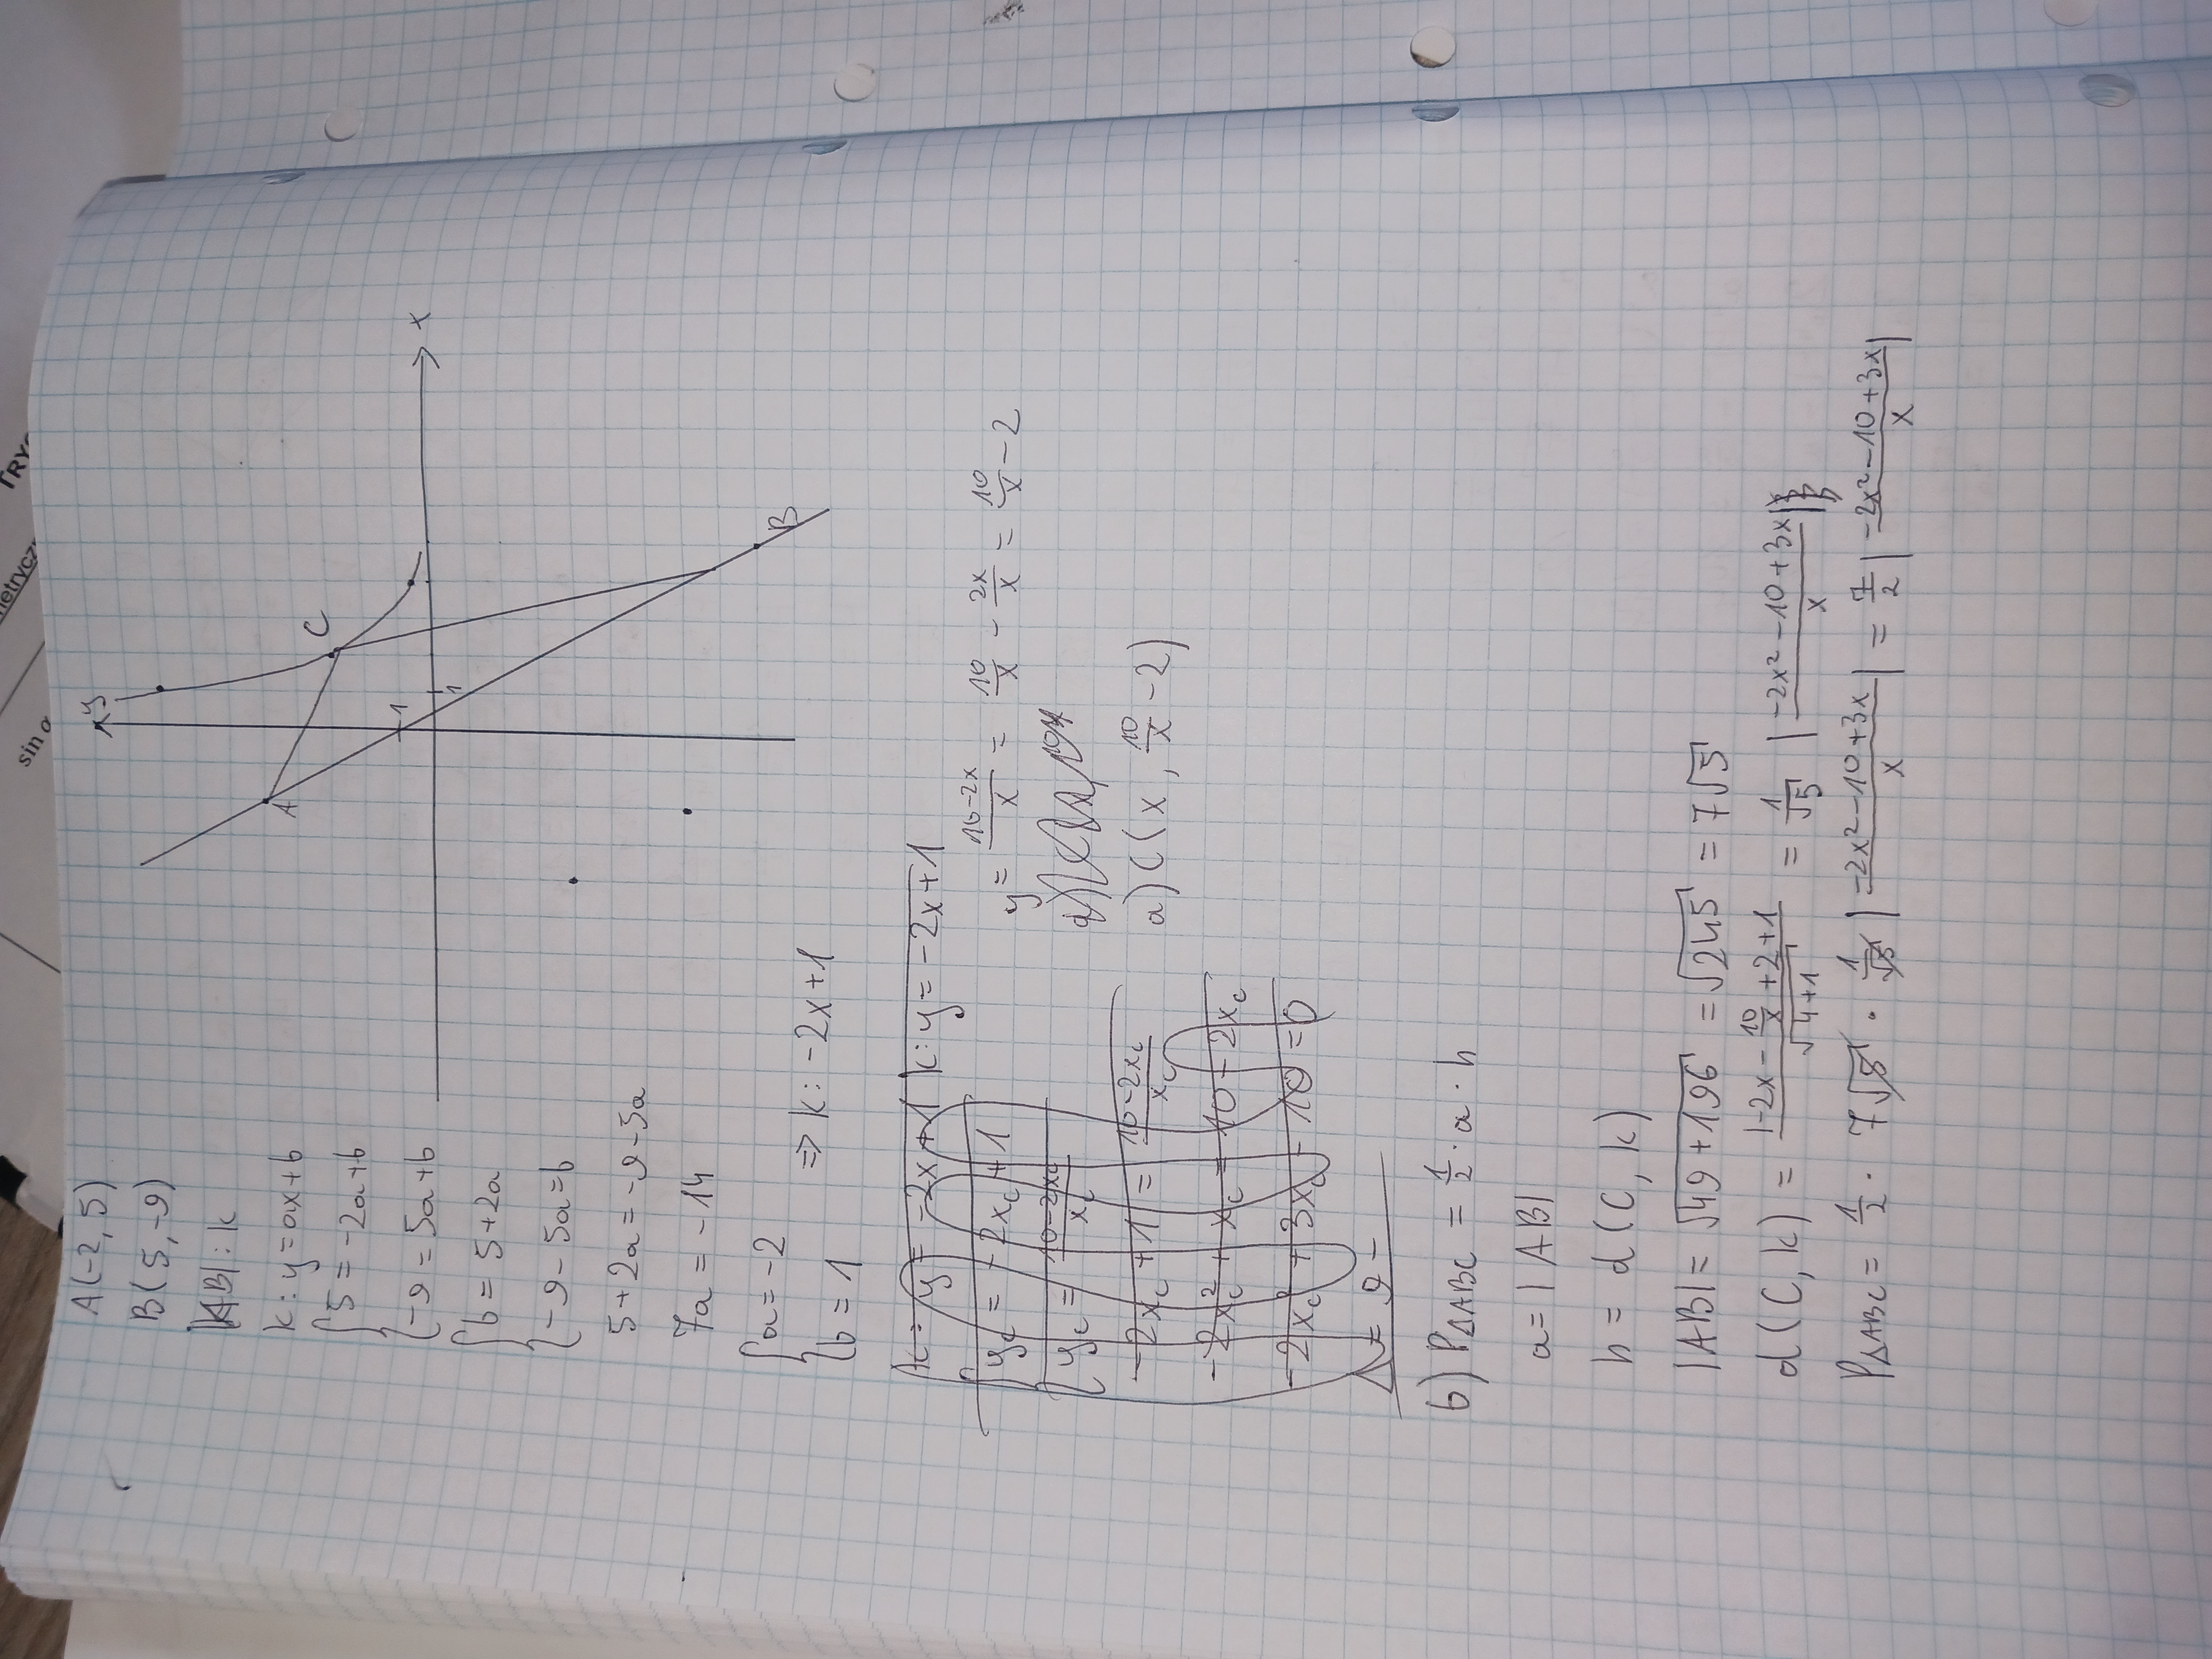 A(-2, 5)
B(5, -9)
|AB|: k
k: y = ax + b
{5 = -2a + b
{-9 = 5a + b
{b = 5 + 2a
{-9 - 5a = b
5 + 2a = -9 - 5a
7a = -14
{a = -2
{b = 1 => k: -2x + 1
y
x
1
1
A
B
C
k: y = -2x + 1
k: y = -2x + 1
{y_c = -2x_c + 1
{y_c = \frac{10-2x_c}{x_c}
-2x_c + 1 = \frac{10-2x_c}{x_c}
-2x_c² + x_c = 10 - 2x_c
-2x_c² + 3x_c - 10 = 0
Δ = 9 -
y = \frac{10-2x}{x} = \frac{10}{x} - \frac{2x}{x} = \frac{10}{x} - 2
a) C(x, \frac{10}{x} - 2)
b) P_{ΔABC} = \frac{1}{2} · a · h
a = |AB|
h = d(C, k)
|AB| = √(49 + 196) = √245 = 7√5
d(C, k) = \frac{|-2x - \frac{10}{x} + 2 + 1}{√(4+1)} = \frac{1}{√5} |\frac{-2x² - 10 + 3x}{x}|
P_{ΔABC} = \frac{1}{2} · 7√5 · \frac{1}{√5} |\frac{-2x² - 10 + 3x}{x}| = \frac{7}{2} |\frac{-2x² - 10 + 3x}{x}|
sin α